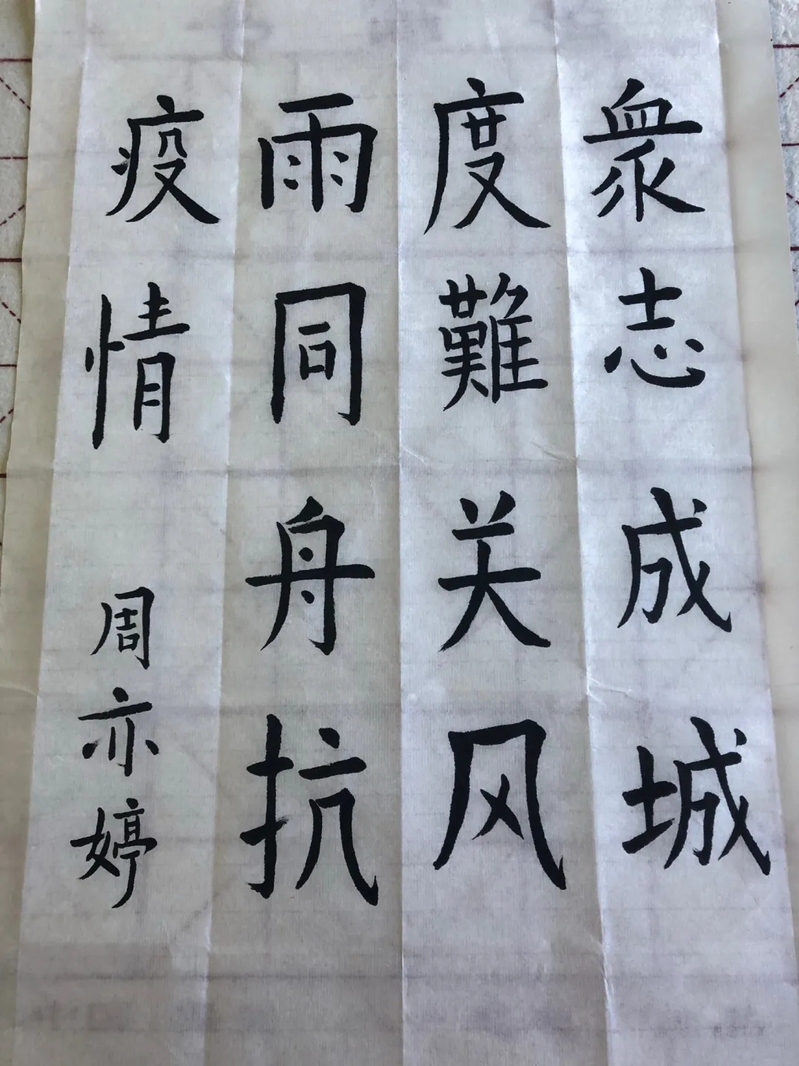 衆志成城
度難关风
雨同舟抗
疫情
周亦婷